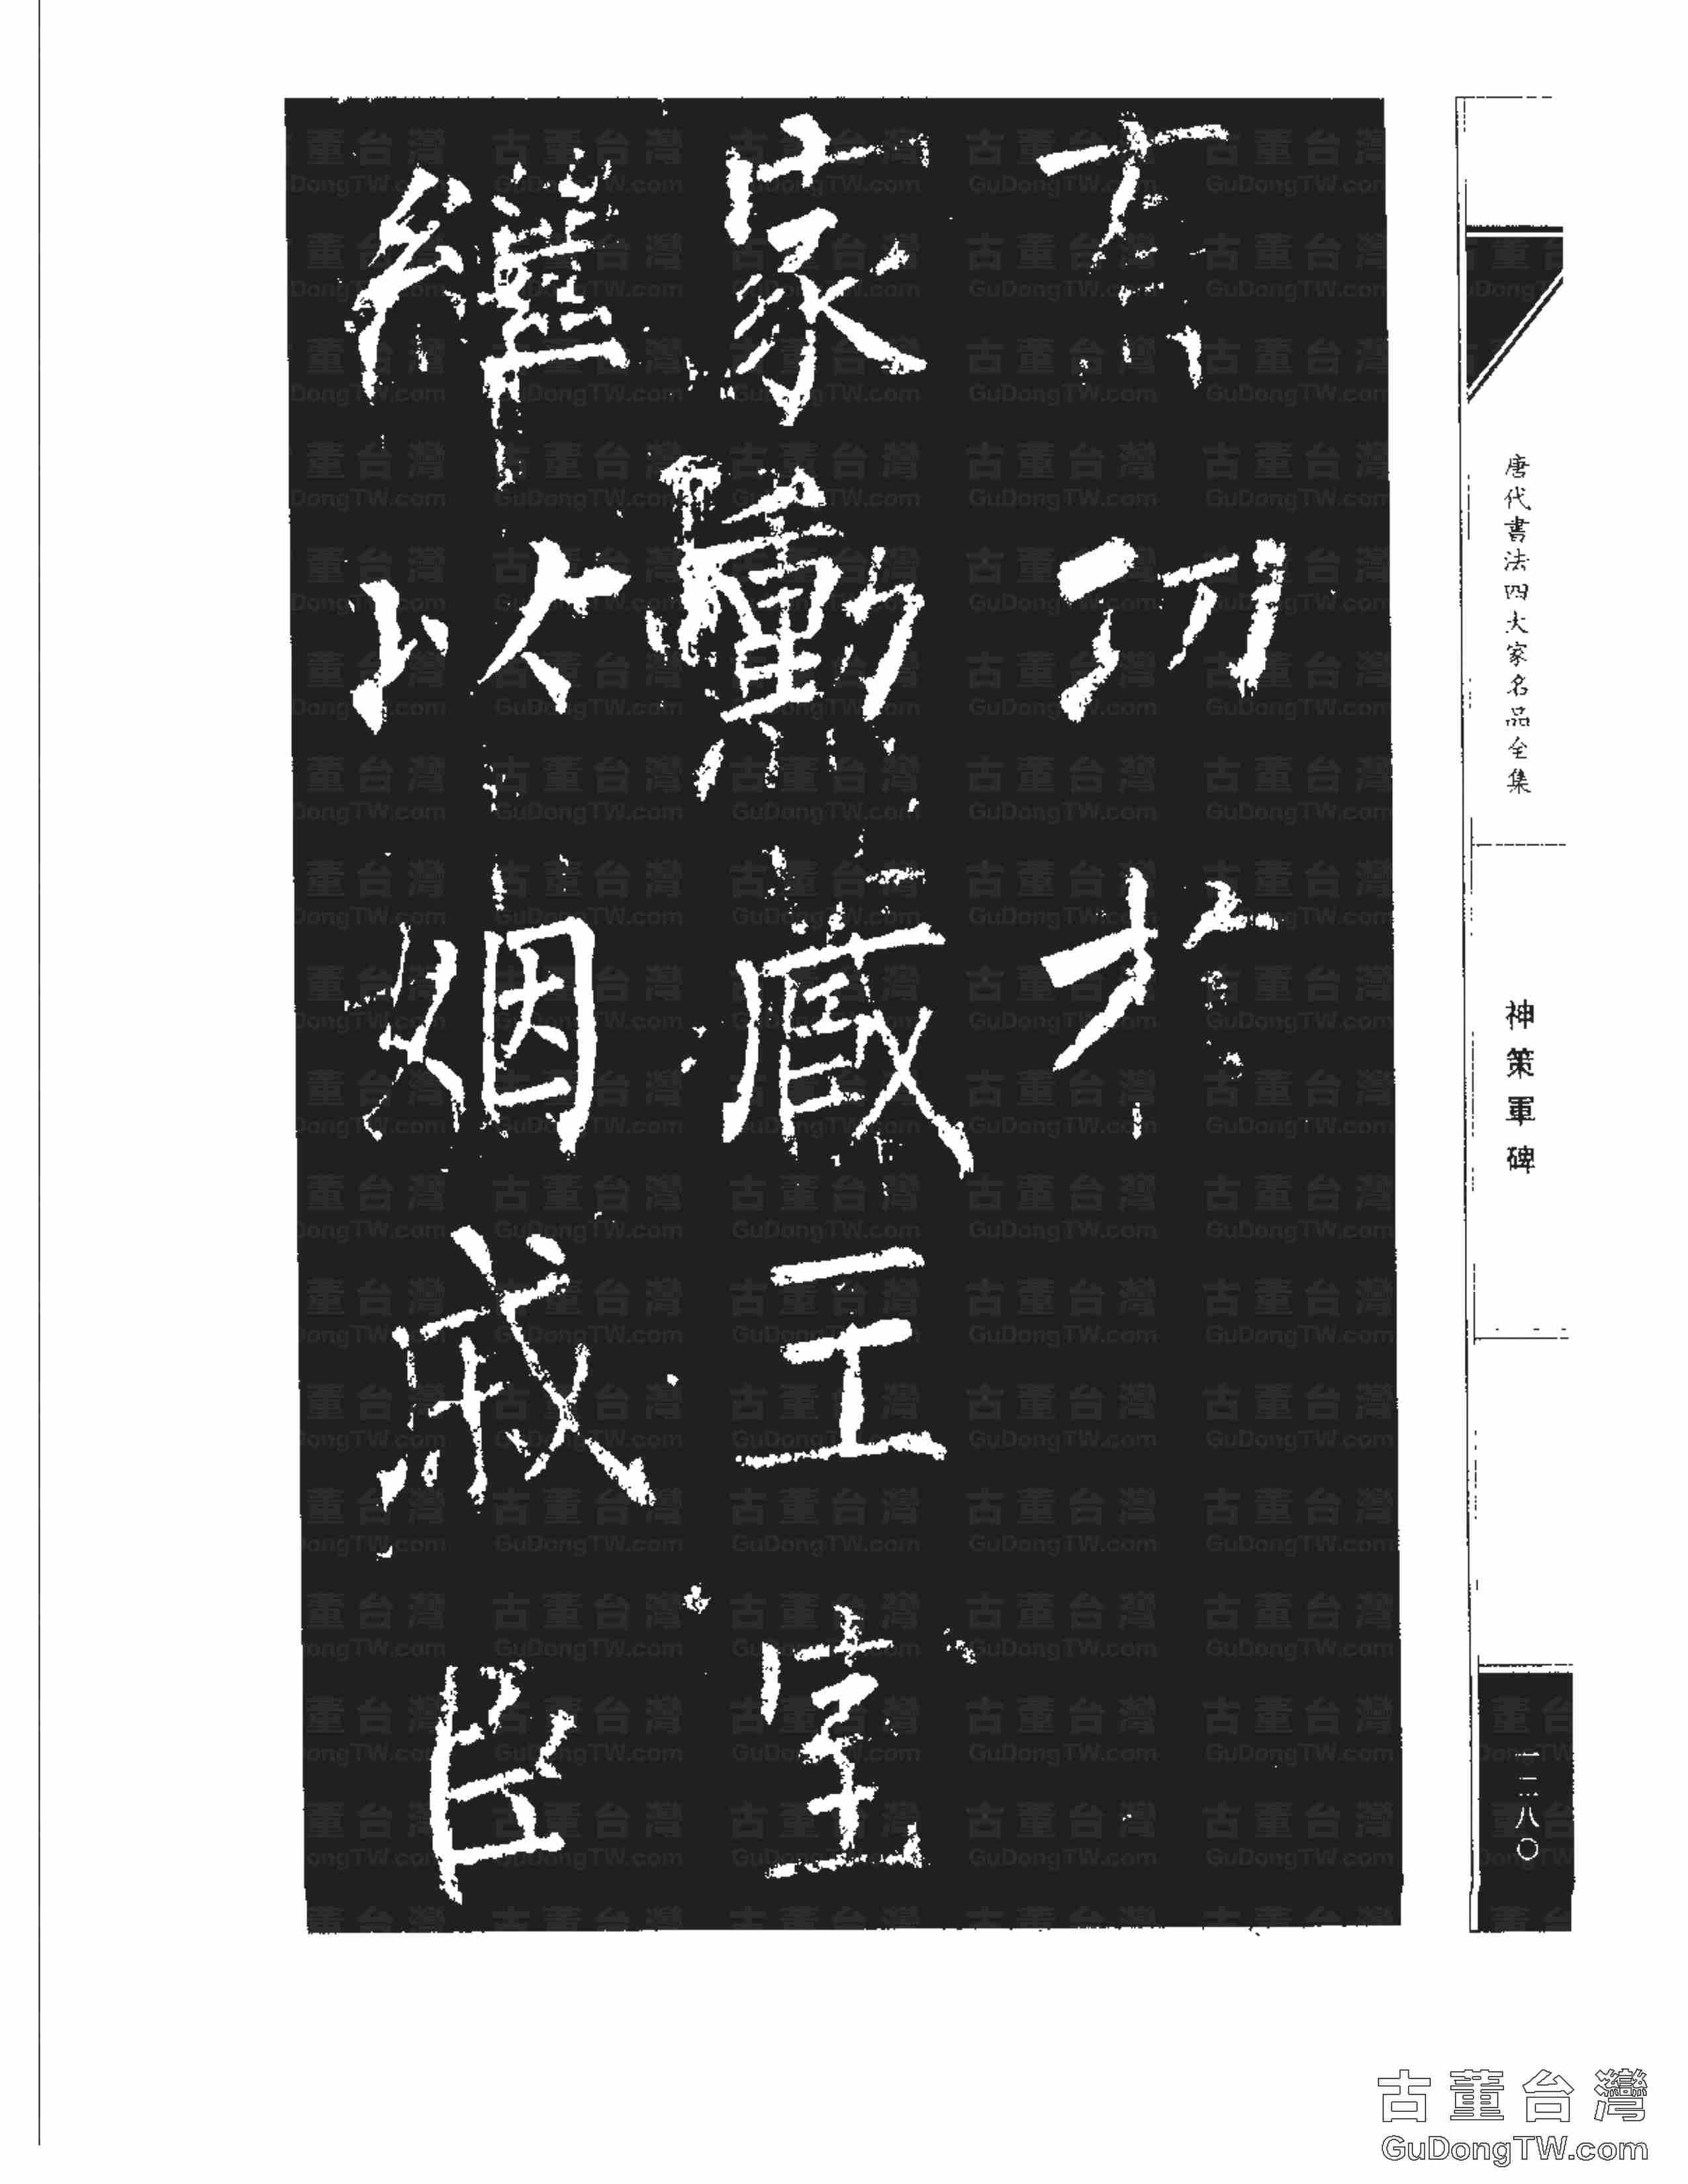 有功扵
家勳藏王室
繼以姻戚臣
唐代書法四大家名品全集
神策軍碑
一二八〇
古董台灣
GuDongTW.com